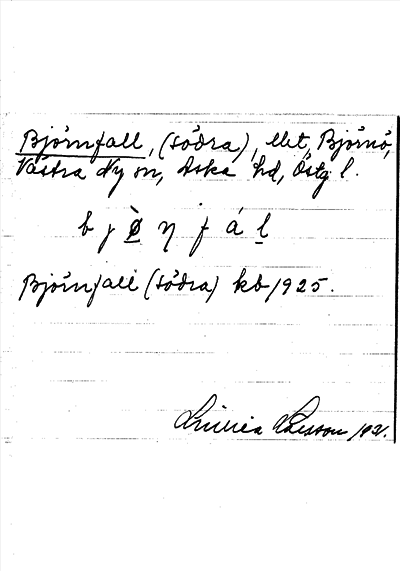 Björnfall, (södra), llet, Björnö,
Västra Ny sn, Aska hd, Östg l.
b j ø̀ ŋ f á l
Björnfall (södra) kb 1925.
Larsson 192